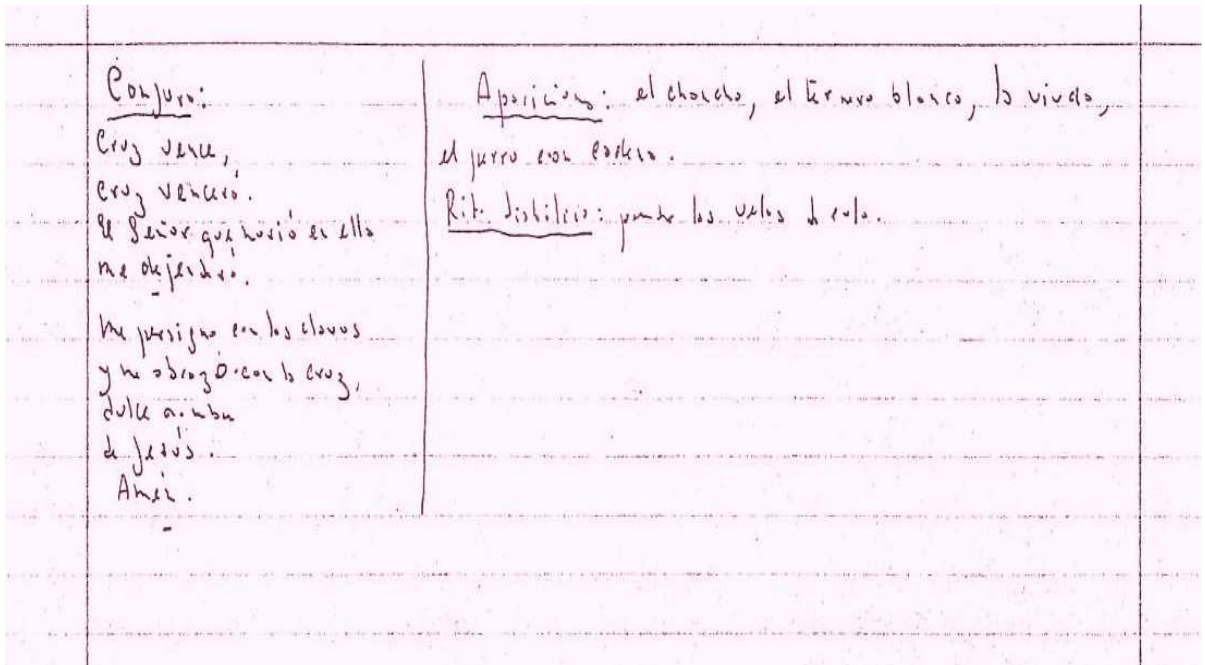 Conjuro:
Cruz vence,
cruz vencerá.
El Señor que murió en ella
me defenderá.
Me persigno con los clavos
y me abrazo con la cruz,
dulce nombre
de Jesús.
Amén.
Apariciones: el chancho, el ternero blanco, la viuda,
el perro con cadena.
Rito diabólico: poner las velas de culo.